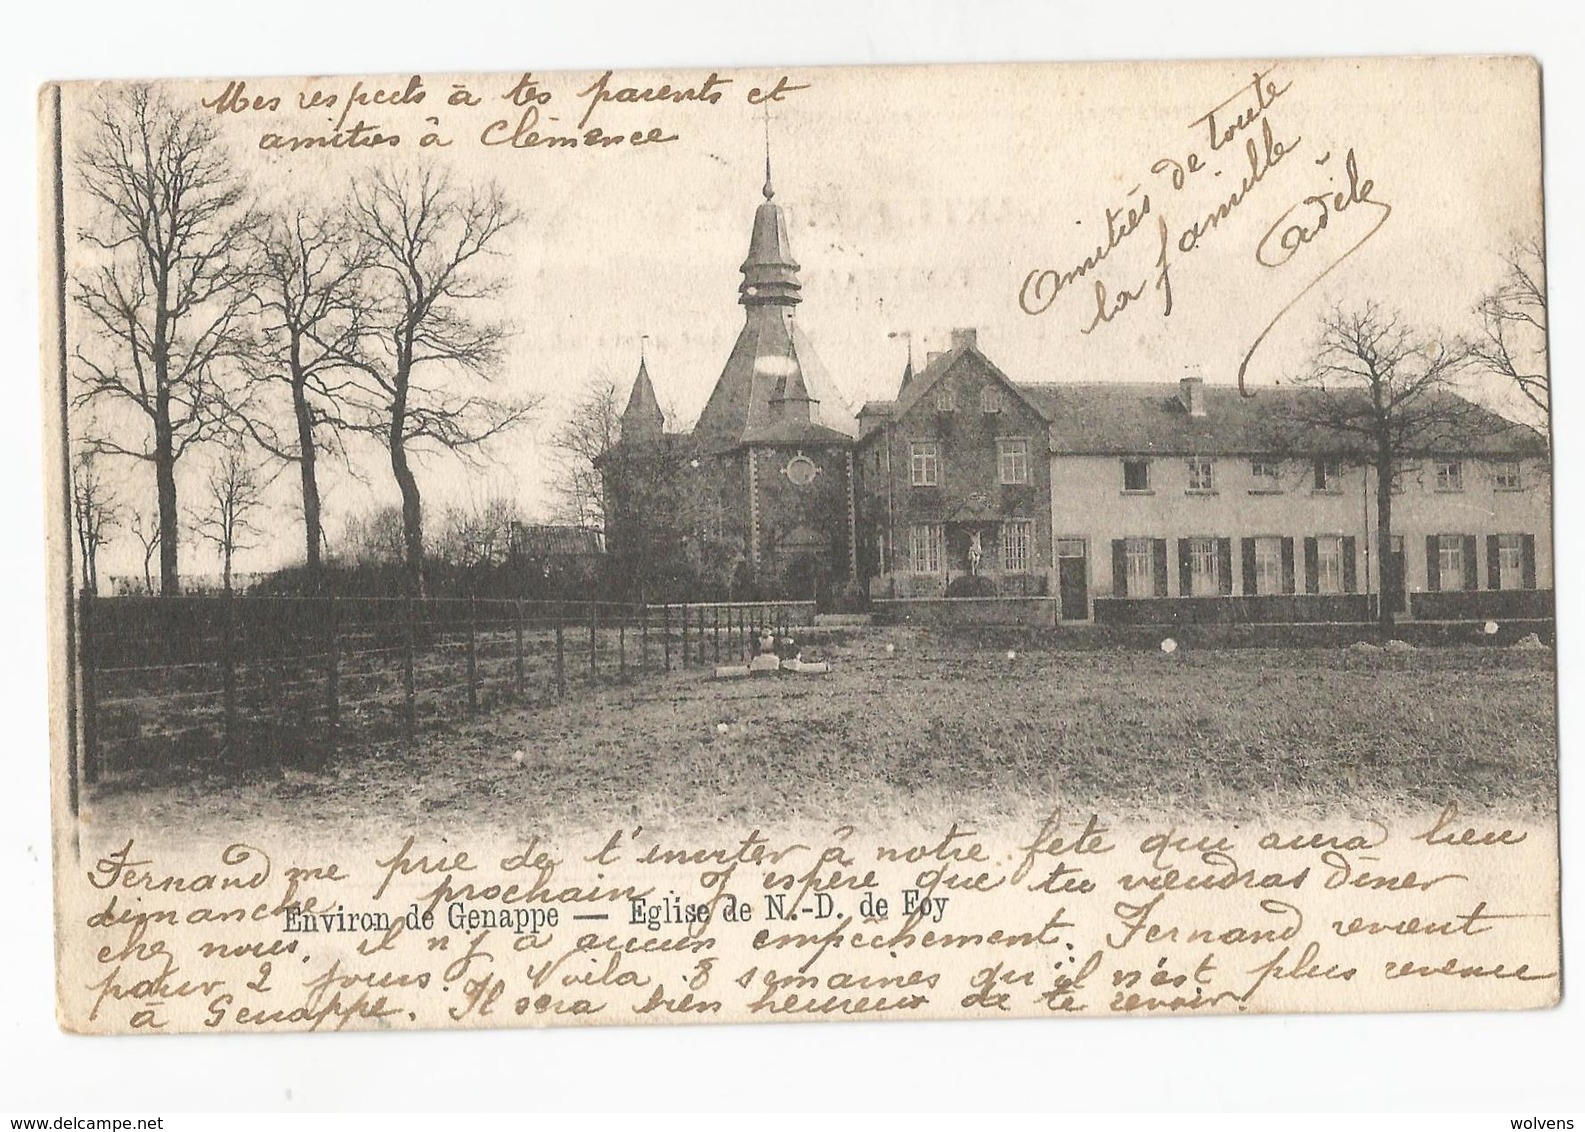 Mes respects à tes parents et
amitiés à Clémence
Amitiés de toute
la famille
Adèle
Fernand me prie de t'inviter à notre fête qui aura lieu
dimanche prochain J'espère que tu viendras dîner
Environ de Genappe — Eglise de N.-D. de Foy
chez nous. il n'y a aucun empêchement. Fernand revient
pour 2 jours. Voila 8 semaines qu'il n'est plus revenu
à Genappe. Il sera bien heureux de te revoir.
wolvens